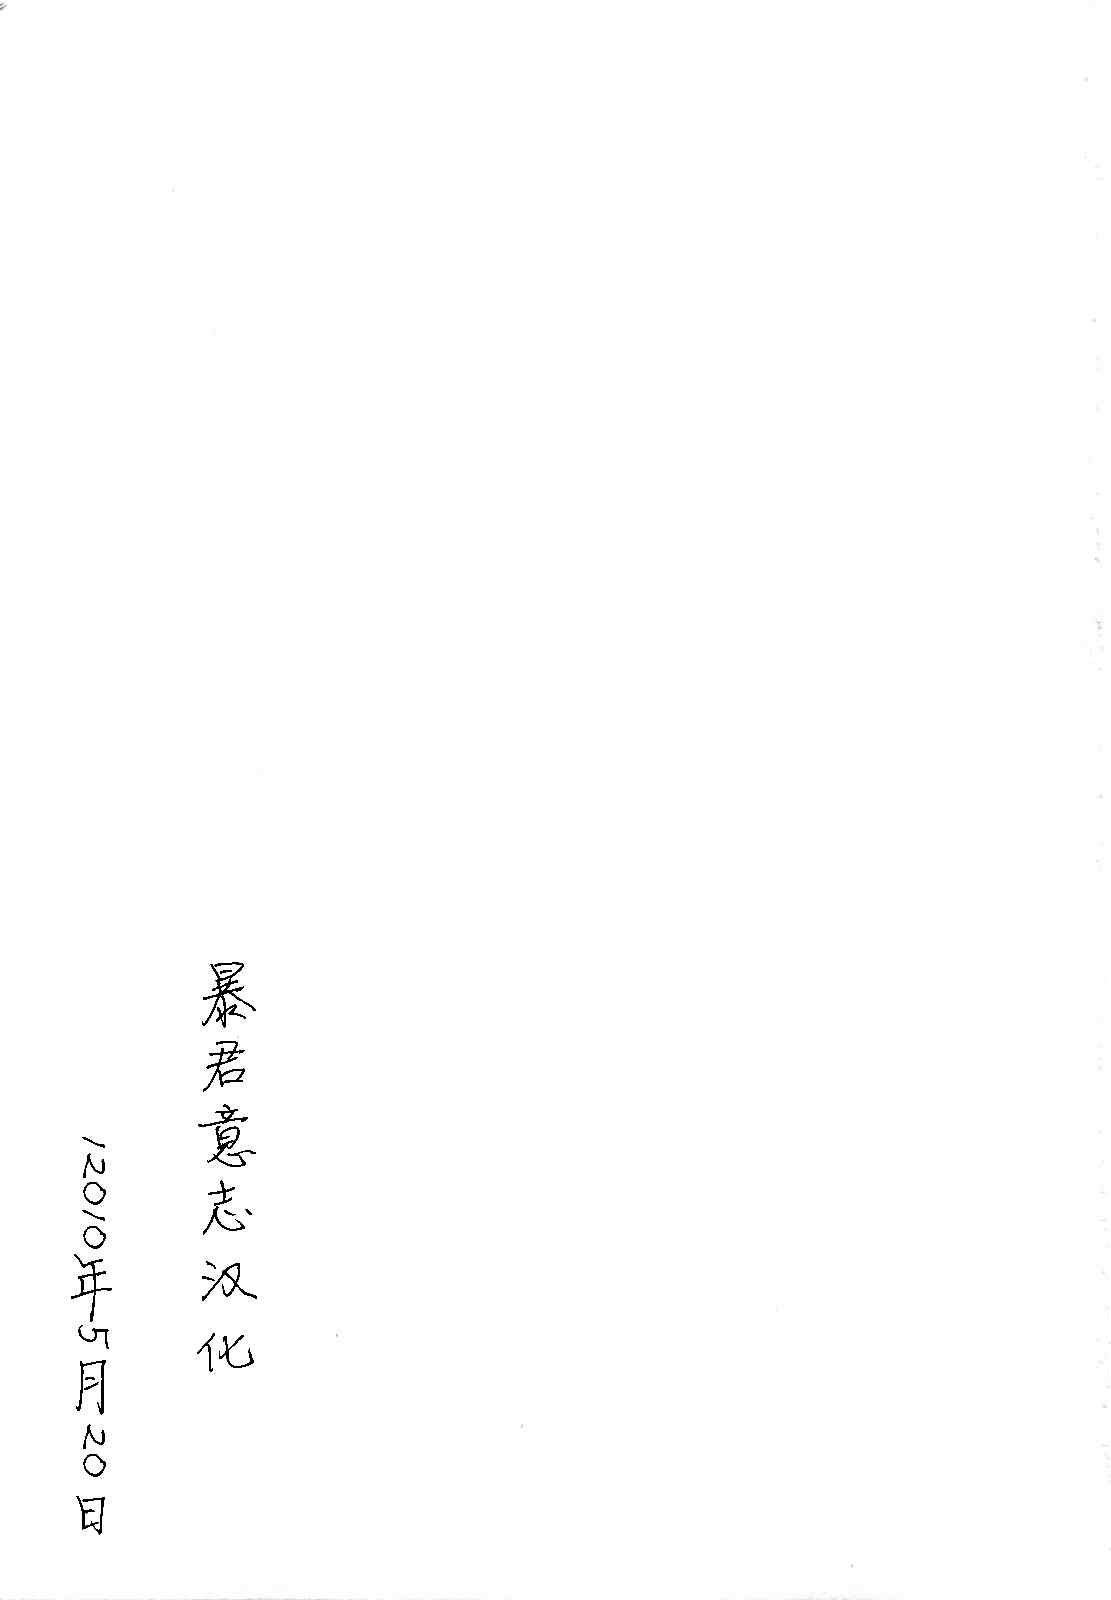 暴君意志汉化
12010年5月20日